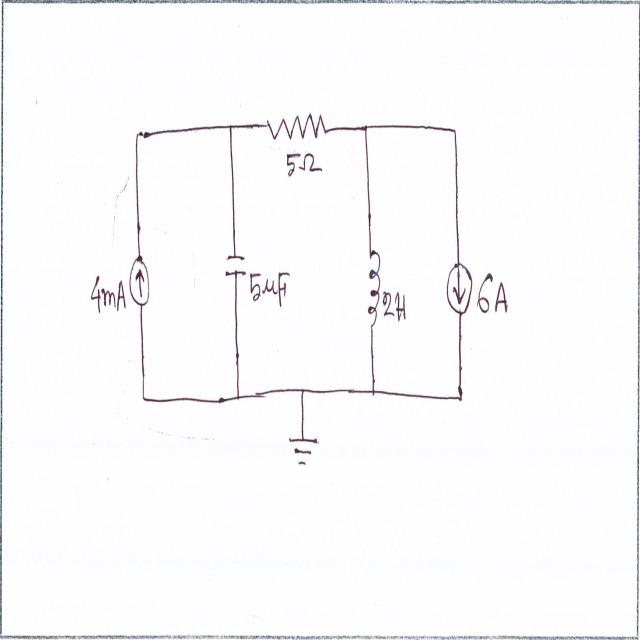 5Ω
4mA
5μF
2H
6A